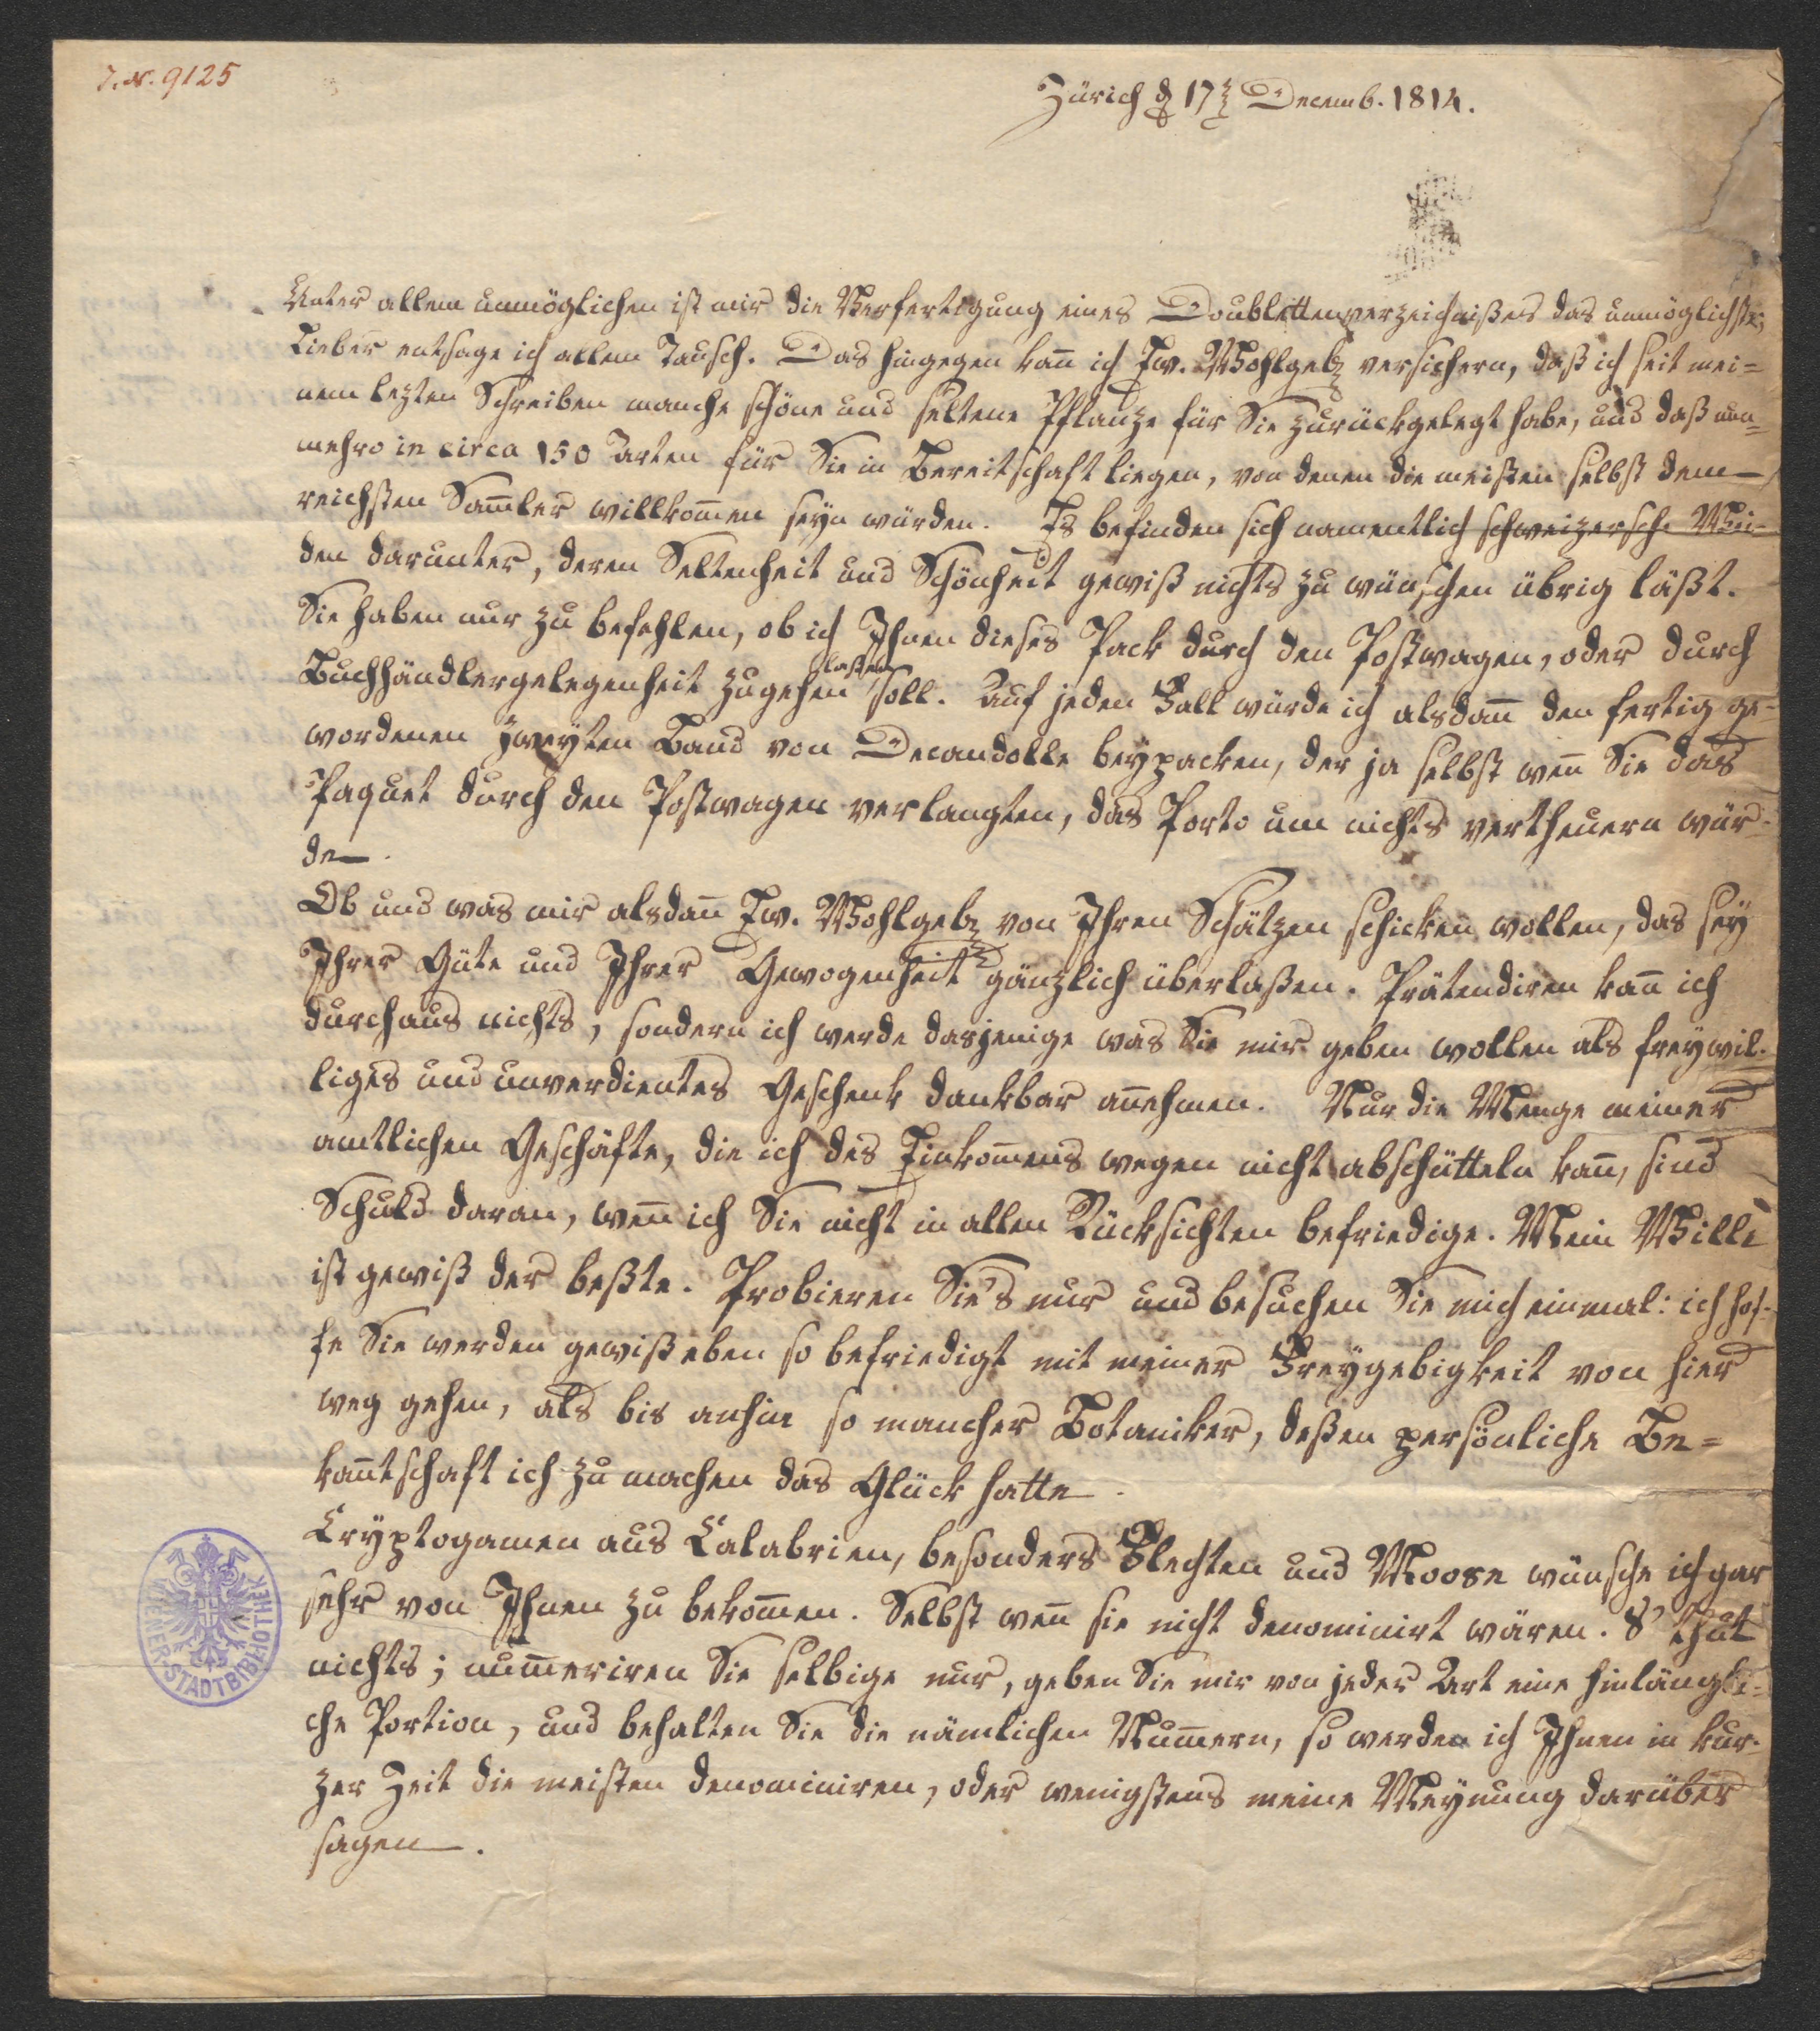 I. N. 9125
Zürich d 17 Decemb. 1814.
Unter allem unmöglichen ist mir die Verfertigung eines Doublettenverzeichnißes das unmöglichste;
Lieber entsage ich allem Tausch. Das hingegen kan̅ ich Ew. Wohlgeb versichern, daß ich seit mei=
nem lezten Schreiben manche schöne und seltene Pflanze für Sie zurückgelegt habe, und daß nun=
mehro in circa 150 Arten für Sie in Bereitschaft liegen, von denen die meisten selbst dem
reichsten Sam̅ler willkom̅en seyn würden. Es befinden sich namentlich schweizersche Wei=
den darunter, deren Seltenheit und Schönheit gewiß nichts zu wünschen übrig läßt.
Sie haben nur zu befehlen, ob ich Ihnen dieses Pack durch den Postwagen, oder durch
Buchhändlergelegenheit zugehen laßen soll. Auf jeden Fall würde ich alsdan̅ den fertig ge=
wordenen zweyten Band von Decandolle beypacken, der ja selbst wen̅ Sie das
Paquet durch den Postwagen verlangten, das Porto um nichts vertheuern wür=
de.
Ob und was mir alsdan̅ Ew. Wohlgeb von Ihren Schätzen schicken wollen, das sey
Ihrer Güte und Ihrer Gewogenheit gänzlich überlaßen. Prätendiren kan̅ ich
durchaus nichts, sondern ich werde dasjenige was Sie mir geben wollen als freywil=
liges und unverdientes Geschenk dankbar an̅ehmen. Nur die Menge meiner
amtlichen Geschäfte, die ich des Einkom̅ens wegen nicht abschütteln kan̅, sind
Schuld daran, wen̅ ich Sie nicht in allen Rücksichten befriedige. Mein Wille
ist gewiß der beßte. Probieren Sie's nur und besuchen Sie mich einmal: ich hof=
fe Sie werden gewiß eben so befriedigt mit meiner Freygebigkeit von hier
weg gehen, als bis anhin so mancher Botaniker, deßen persönliche Be=
kan̅tschaft ich zu machen das Glück hatte.
Cryptogamen aus Calabrien, besonders Flechten und Moose wünsche ich gar
sehr von Ihnen zu bekom̅en. Selbst wen̅ sie nicht denominirt wären. S' thut
nichts; num̅eriren Sie selbige nur, geben Sie mir von jeder Art eine hinlängli=
che Portion, und behalten Sie die nämlichen Num̅ern, so werde ich Ihnen in kur=
zer Zeit die meisten denominiren, oder wenigstens meine Meynung darüber
sagen.
WIENER-STADTBIBLIOTHEK